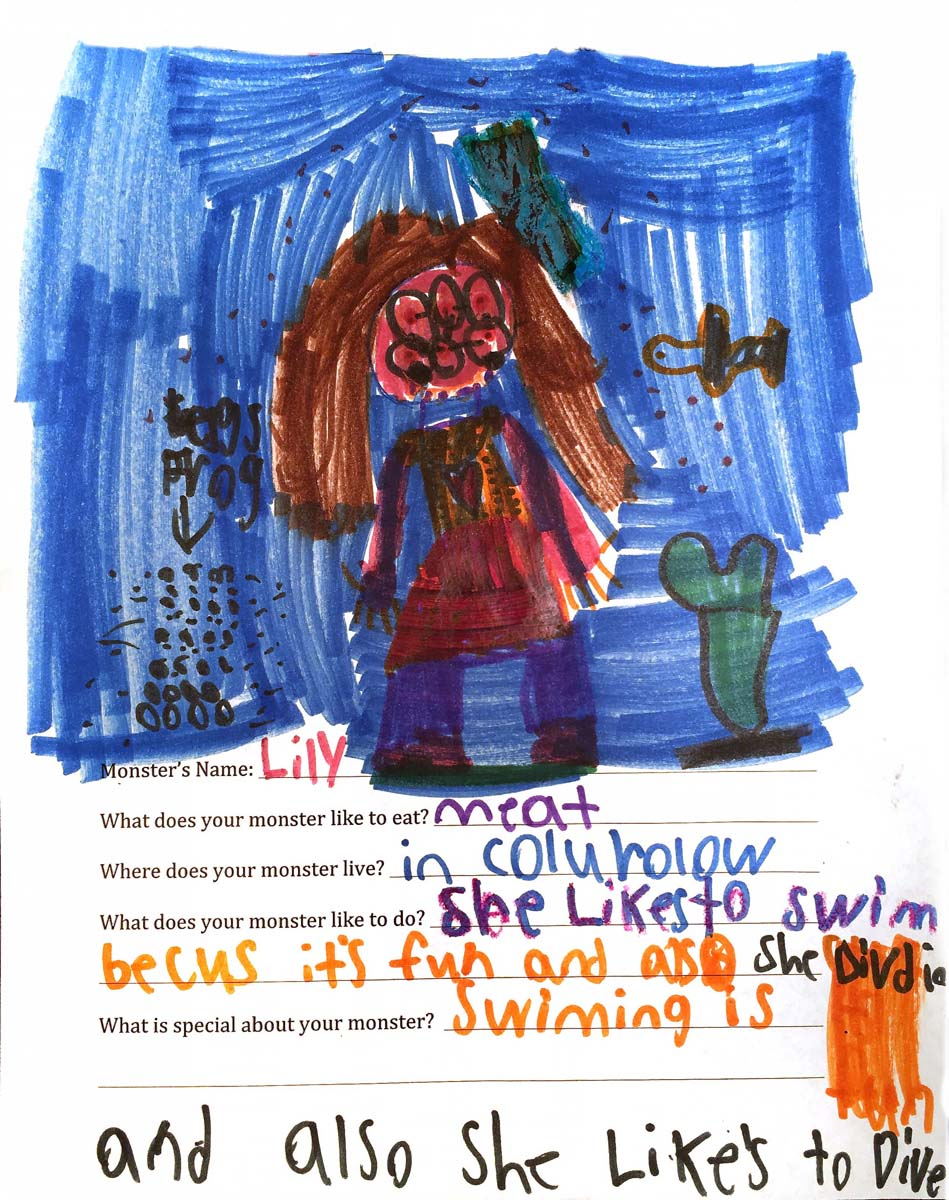 Monster's Name: Lily
What does your monster like to eat? meat
Where does your monster live? in coluholow
What does your monster like to do? She Likes to swim
becus it's fun and also she
What is special about your monster? Swiming is
and also She Like's to Dive